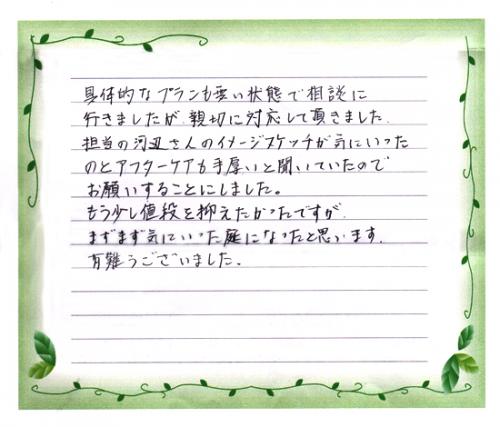 具体的なプランも無い状態で相談に
行きましたが、親切に対応して頂きました。
担当の河辺さんのイメージスケッチが気にいった
のとアフターケアも手厚いと聞いていたので
お願いすることにしました。
もう少し値段を抑えたかったですが、
まずまず気にいった庭になったと思います。
有難うございました。